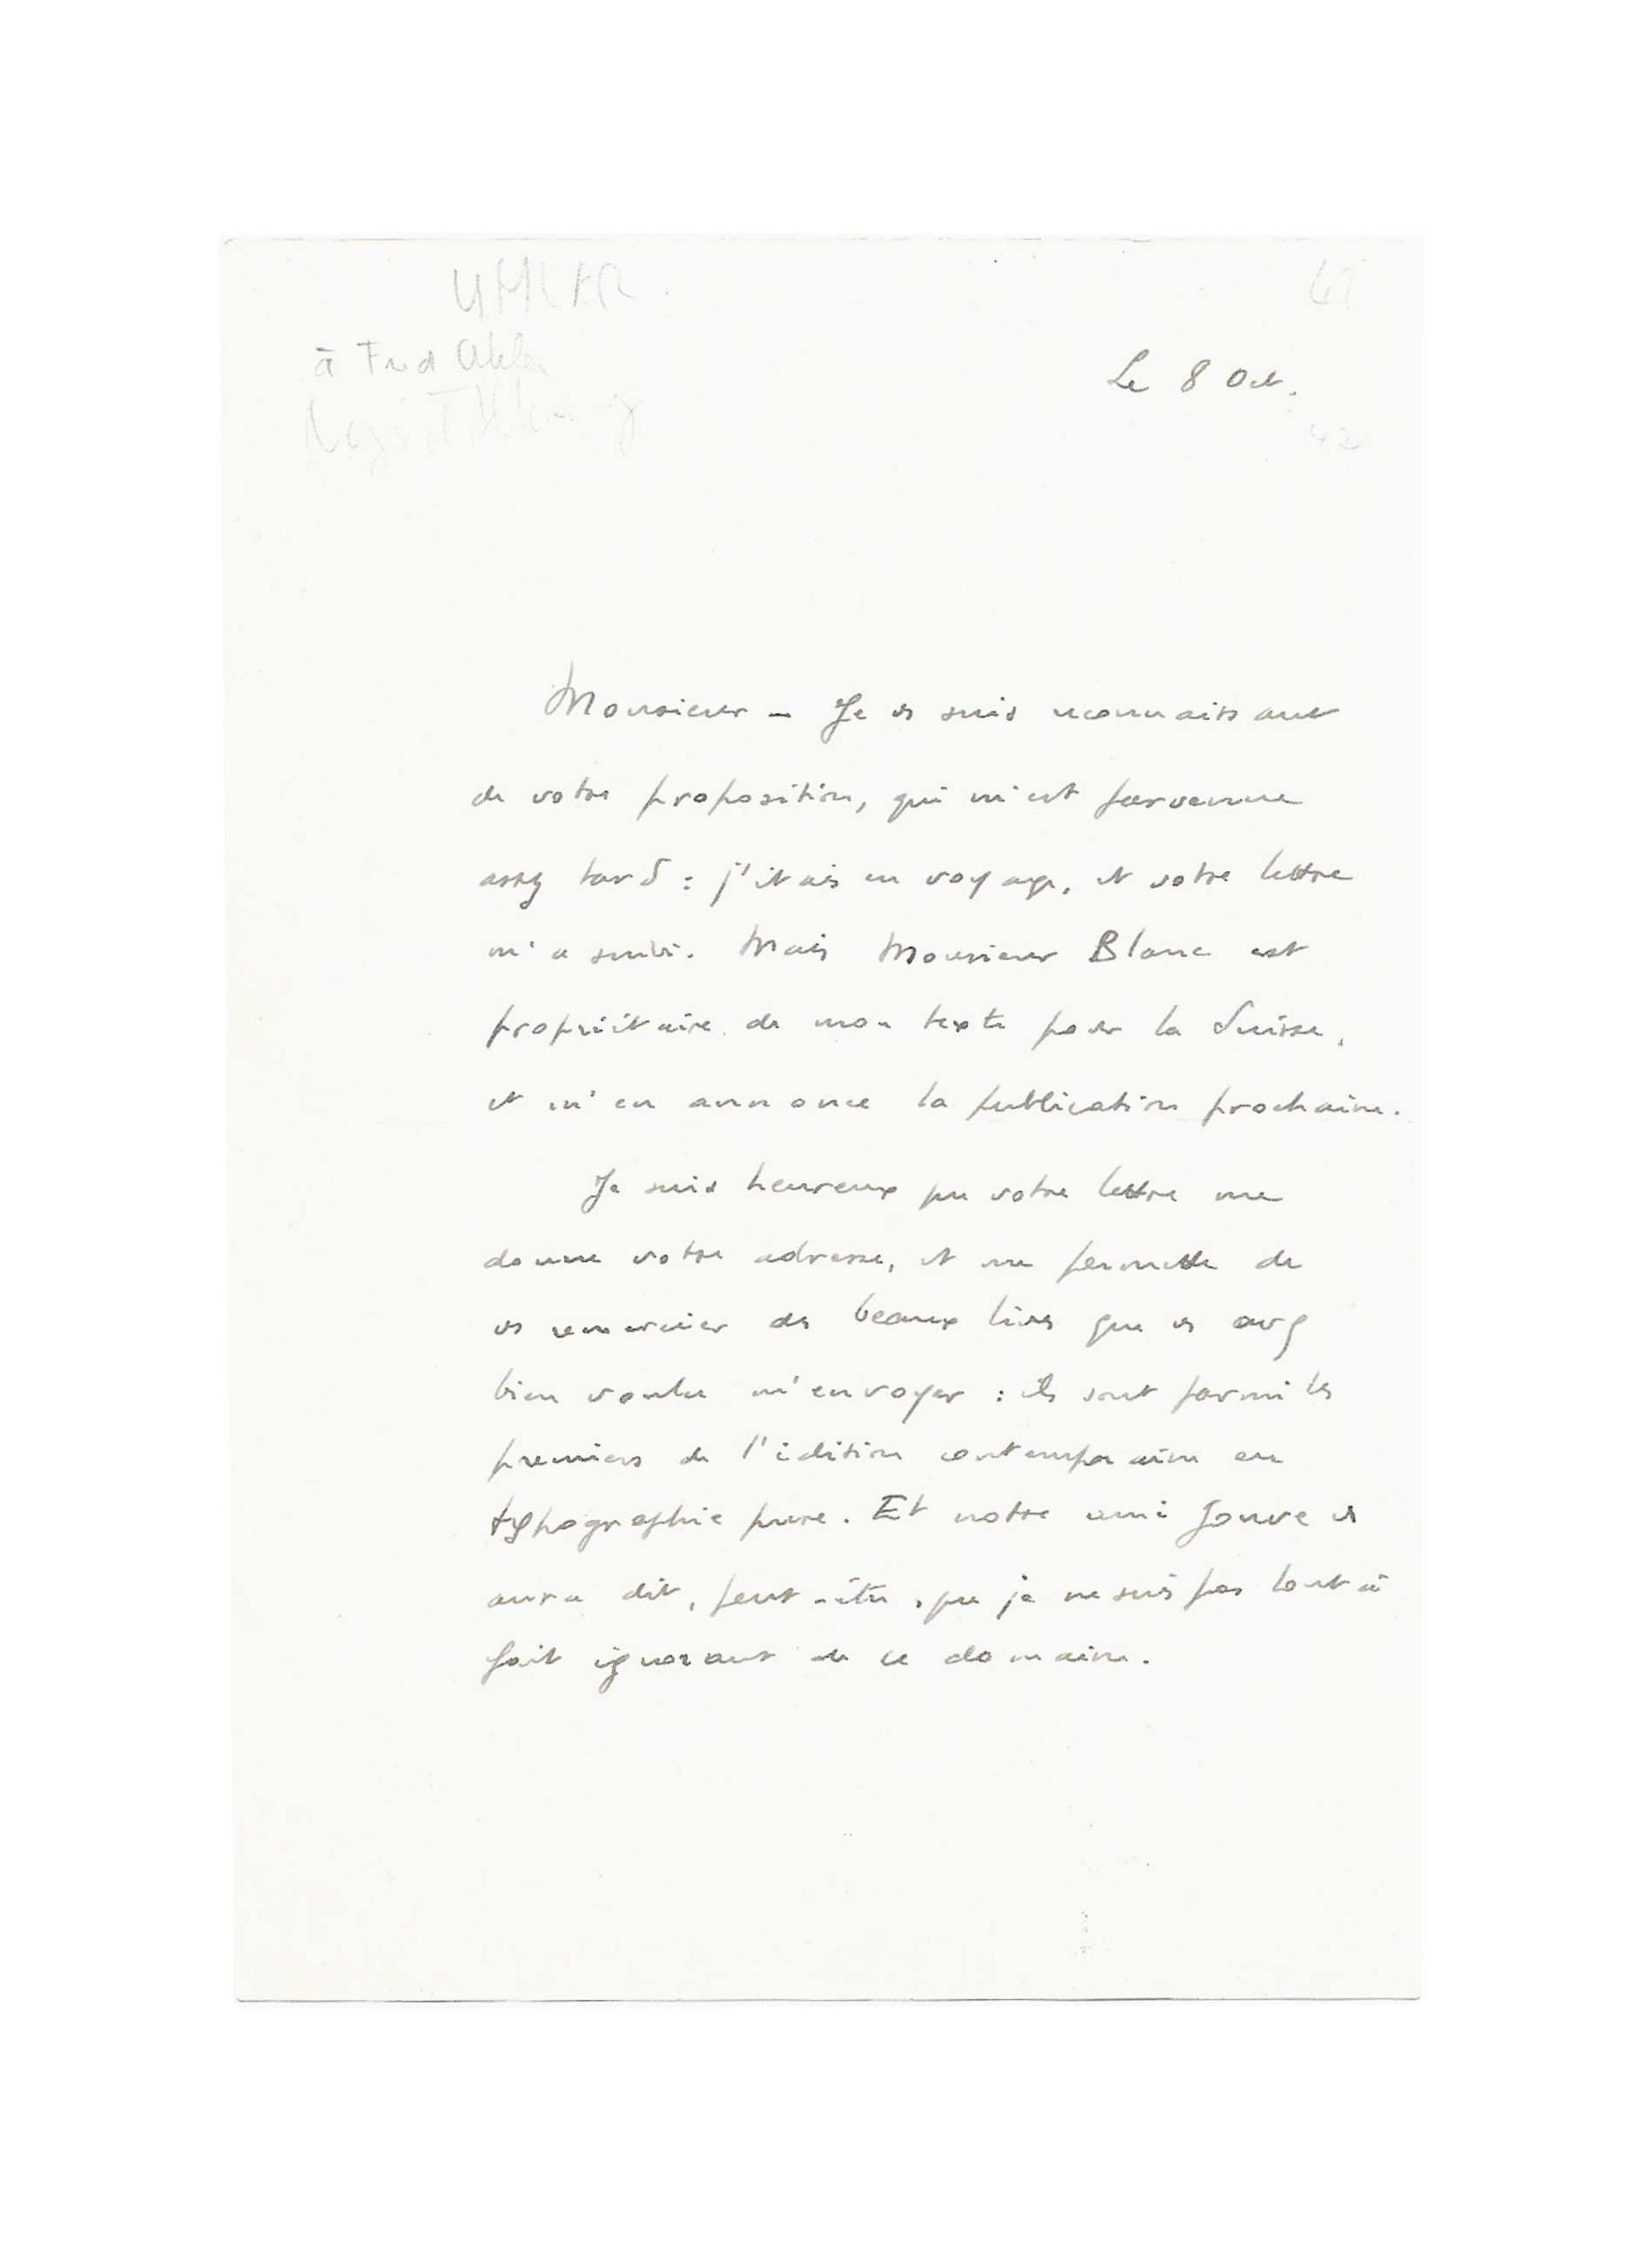 à Fred
Le 8 Oct.
42
Monsieur – Je vs suis reconnaissant
de votre proposition, qui m'est parvenue
assez tard : j'étais en voyage, et votre lettre
m'a suivi. Mais Monsieur Blanc est
propriétaire de mon texte pour la Suisse,
et m'en annonce la publication prochaine.
Je suis heureux que votre lettre me
donne votre adresse, et me permette de
vs remercier des beaux livres que vs avez
bien voulu m'envoyer : ils sont parmi les
premiers de l'édition contemporaine en
typographie pure. Et notre ami Jouve vs
aura dit, peut-être, que je ne suis pas tout à
fait ignorant en ce domaine.